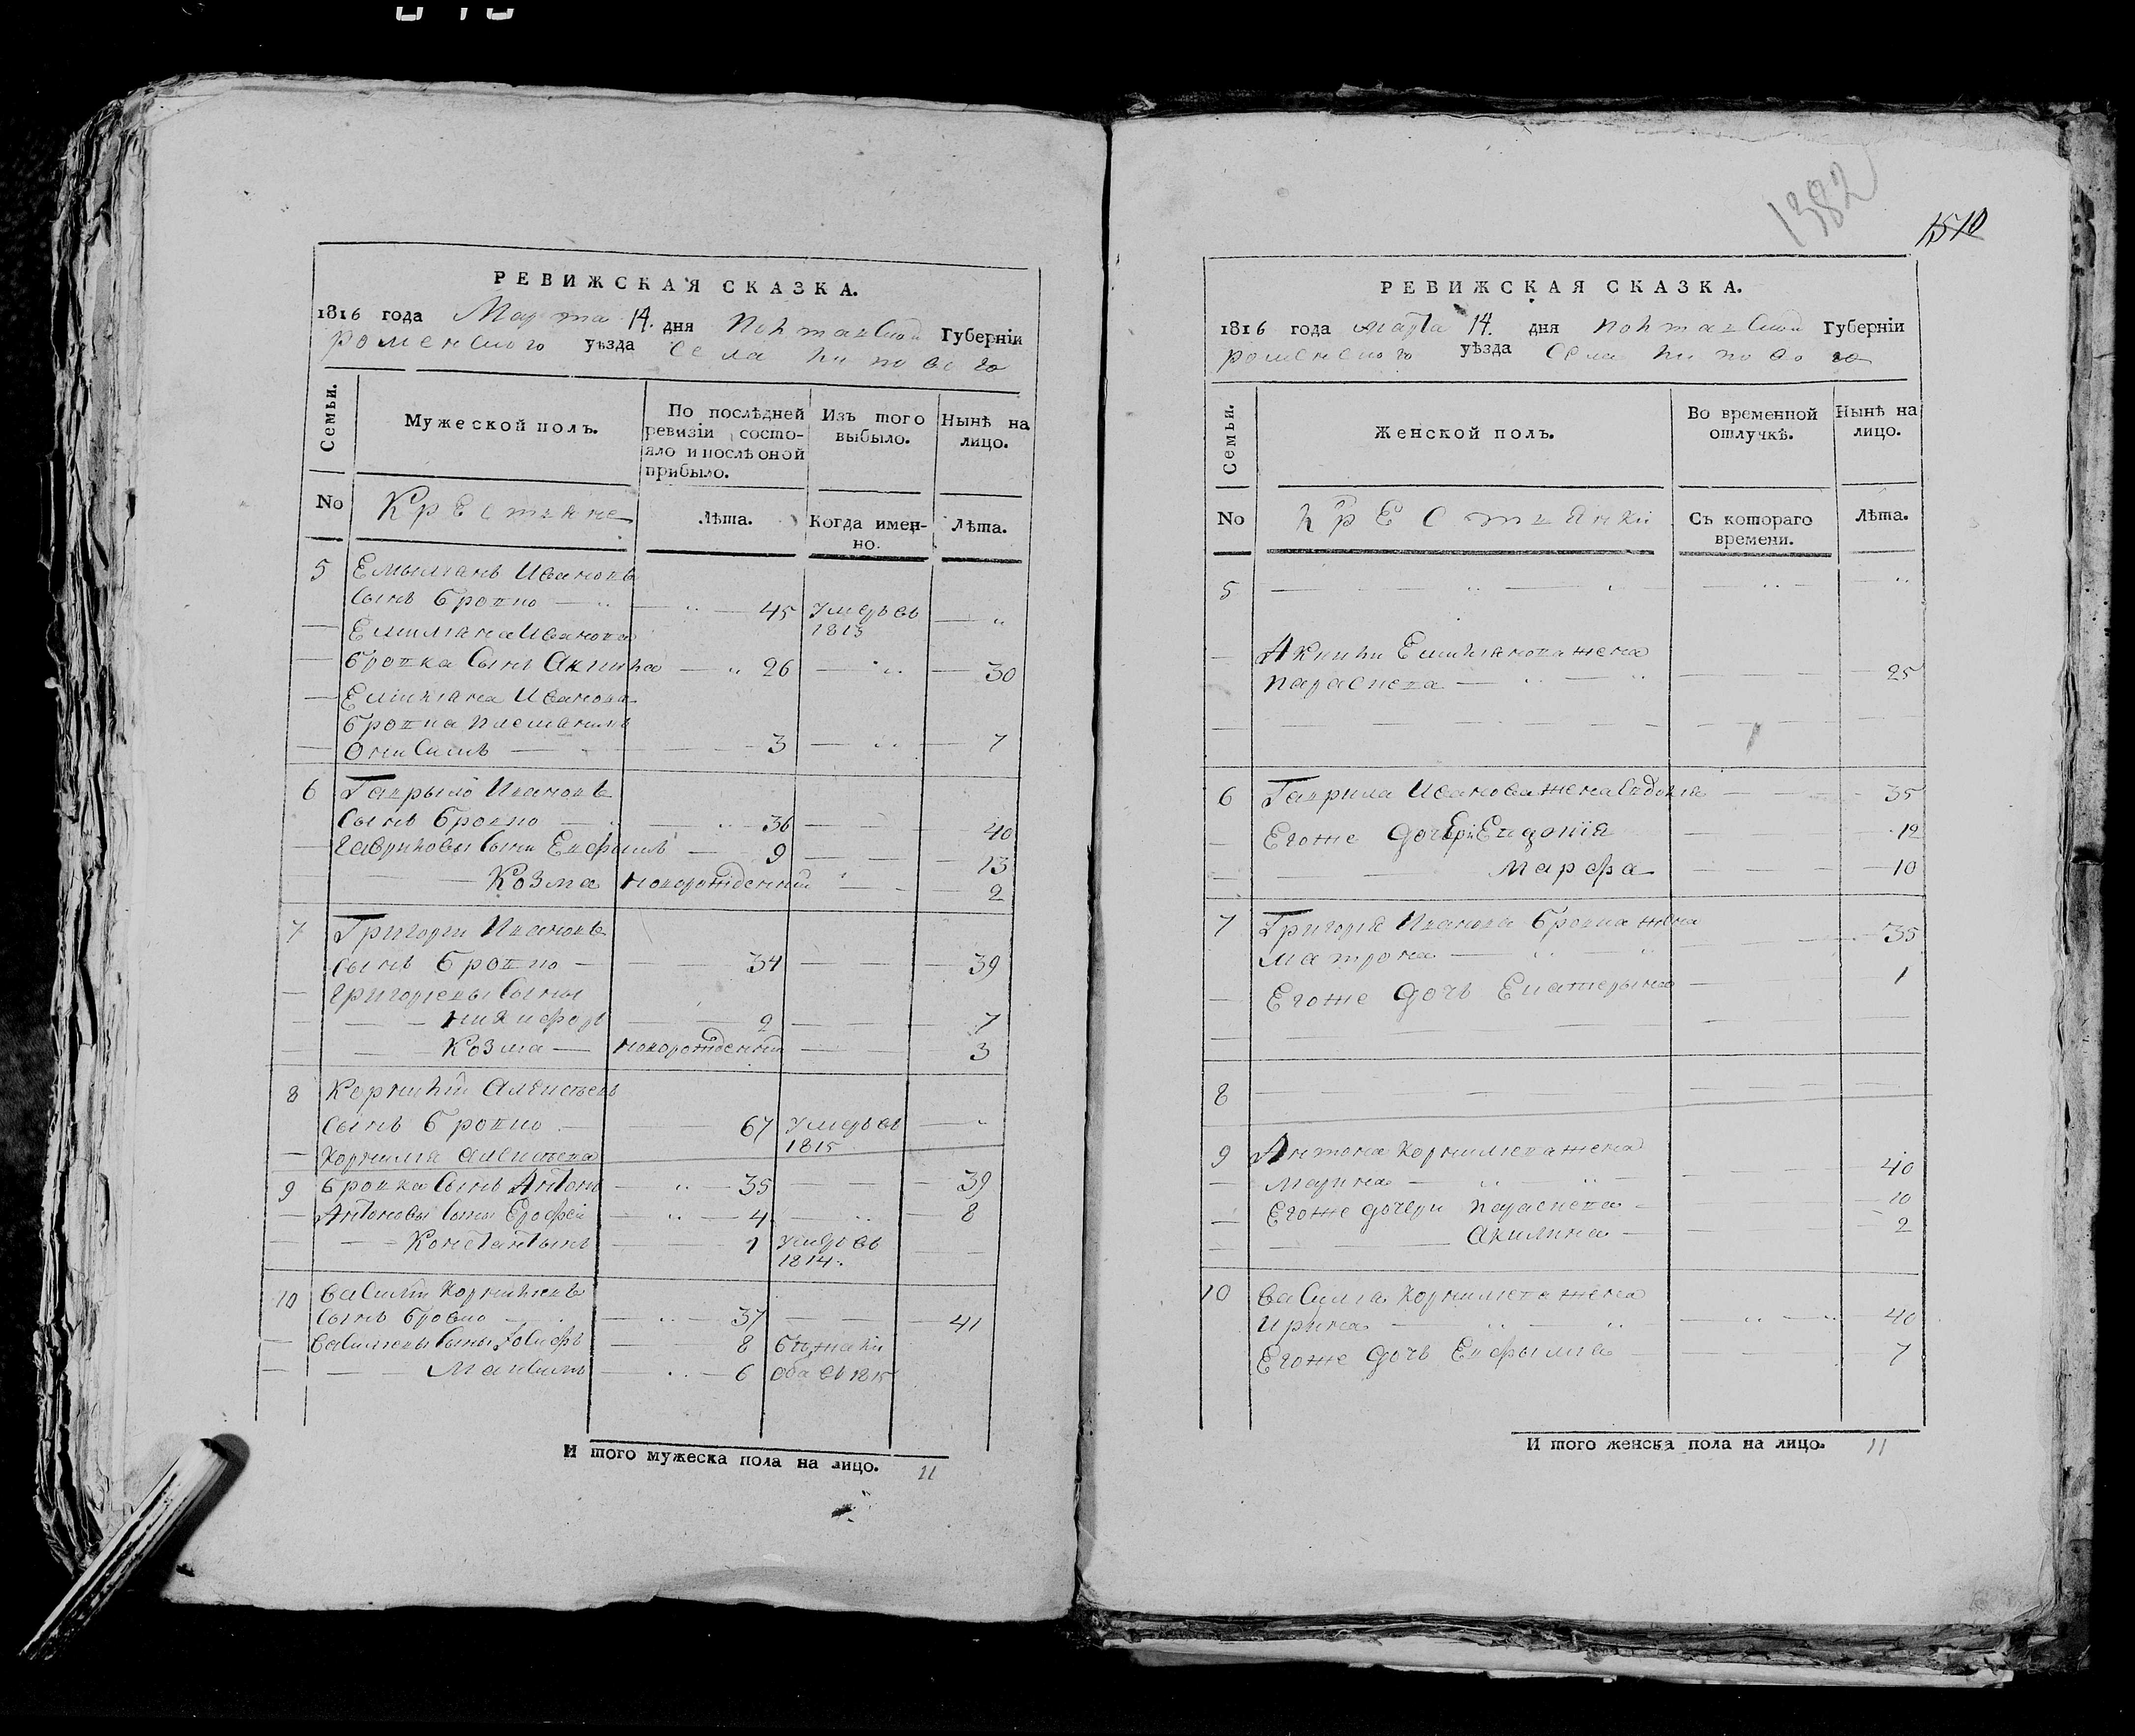 РЕВИЖСКАЯ СКАЗКА.
1816 года Марта 14. дня Полтавской Губерніи
роменского уѣзда села липового
Семьи.
Мужеской полъ.
По послѣдней ревизіи состояло и послѣ оной прибыло.
Изъ того выбыло.
Нынѣ на лицо.
No
Крестяне
Лѣта.
Когда именно.
Лѣта.
5 Емылянъ Ивановъ
сынъ бровко 45 умеръ въ 1813
Емиляна Иванова
бровка сынъ Акинъ 26 30
Емиляна Иванова
бровка племаникъ
Онисимъ 3 7
6 Гаврыло Ивановъ
сынъ бровко 36 40
Гавриловы сыны Евфимъ 9 13
Козма новорожденній 2
7 Григории Ивановъ
сынъ бровко 34 39
Григориевы сыны
никифоръ 2 7
Козма новорожденній 3
8 Корнилій Алексѣевъ
сынъ бровко 67 умеръ въ 1815
Корнилія алексѣева
9 бровка сынъ Антонъ 35 39
Антоновы сыны Ерофей 4 8
Константынъ 1 умеръ въ 1814.
10 василій Корнилиевъ
сынъ бровко 37 41
василиевы сыны Іосифъ 8 бѣжали
Максимъ 6 оба въ 1815
И того мужеска пола на лицо. 11
1382
1510
РЕВИЖСКАЯ СКАЗКА.
1816 года марта 14. дня полтавской Губерніи
роменского уѣзда села липового
Семьи.
Женской полъ.
Во временной отлучкѣ.
Нынѣ на лицо.
No
крестьянки
Съ котораго времени.
Лѣта.
5
Емилянова жена
параскева 25
6 Гаврила Иванова жена 35
Егоже дочери Евдокія 12
Марфа 10
7 Григорія Иванова бровка жена
матрона 35
Егоже дочь Екатерына 1
8
9 Антона Корнилиева жена
марина 40
Егоже дочери параскева 10
Акилина 2
10 василія Корнилиева жена
ирина 40
Егоже дочь Евфымия 7
И того женска пола на лицо. 11